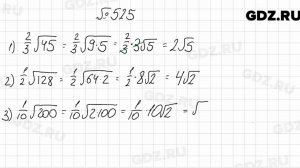 № 525
GDZ.RU
1) 2/3 √45 = 2/3 √9·5 = 2/3 · 3√5 = 2√5
2) 1/2 √128 = 1/2 √64·2 = 1/2 · 8√2 = 4√2
3) 1/10 √200 = 1/10 √2·100 = 1/10 · 10√2 = √